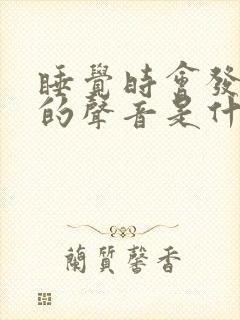 睡覺時會發
的聲音是什
蘭質馨香